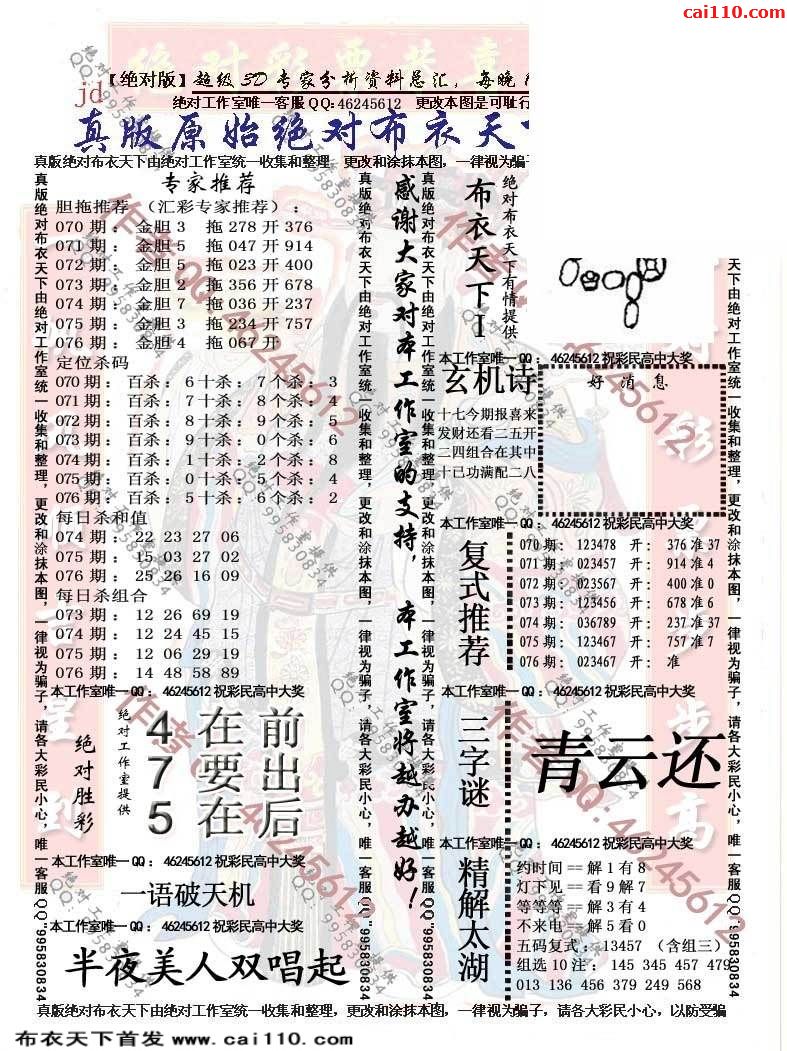 cai110.com
绝对彩票共享
【绝对版】超级3D专家分析资料总汇，每晚
jd
绝对工作室唯一客服QQ:46245612 更改本图是可耻行
真版原始绝对布衣天
真版绝对布衣天下由绝对工作室统一收集和整理 更改和涂抹本图，一律视为骗
真版绝对布衣天下由绝对工作室统一收集和整理，更改和涂抹本图，一律视为骗子，请各大彩民小心，唯一客服QQ"995830834
专家推荐
胆拖推荐 （汇彩专家推荐）:
070期: 金胆3 拖278开376
071期: 金胆5 拖047开914
072期: 金胆5 拖023开400
073期: 金胆2 拖356开678
074期: 金胆7 拖036开237
075期: 金胆3 拖234开757
076期: 金胆4 拖067开
定位杀码
070期: 百杀: 6十杀: 7个杀: 3
071期: 百杀: 7十杀: 8个杀: 4
072期: 百杀: 8十杀: 9个杀: 5
073期: 百杀: 9十杀: 0个杀: 6
074期: 百杀: 1十杀: 2个杀: 8
075期: 百杀: 0十杀: 5个杀: 4
076期: 百杀: 5十杀: 6个杀: 2
每日杀和值
074期: 22 23 27 06
075期: 15 03 27 02
076期: 25 26 16 09
每日杀组合
073期: 12 26 69 19
074期: 12 24 45 15
075期: 12 06 29 19
076期: 14 48 58 89
本工作室唯一QQ: 46245612祝彩民高中大奖
绝对胜彩
绝对工作室提供
4 在 前
7 要 出
5 在 后
本工作室唯一QQ: 46245612祝彩民高中大奖
一语破天机
本工作室唯一QQ: 46245612祝彩民高中大奖
半夜美人双唱起
真版绝对布衣天下由绝对工作室统一收集和整理，更改和涂抹本图，一律视为骗子，请各大彩民小心，唯一客服QQ"995830834
感谢大家对本工作室的支持，本工作室将越办越好！
真版绝对布衣天下由绝对工作室统一收集和整理，更改和涂抹本图，一律视为骗子，请各大彩民小心，唯一客服QQ"995830834
布衣天下I
绝对布衣天下有情提供
本工作室唯一QQ: 46245612祝彩民高中大奖
玄机诗
十七今期报喜来
发财还看二五开
二四组合在其中
十已功满配二八
好消息
本工作室唯一QQ: 46245612祝彩民高中大奖
复式推荐
070期: 123478 开: 376准37
071期: 023457 开: 914准4
072期: 023567 开: 400准0
073期: 123456 开: 678准6
074期: 036789 开: 237准37
075期: 123467 开: 757准7
076期: 023467 开: 准
本工作室唯一QQ: 46245612祝彩民高中大奖
三字谜
青云还
本工作室唯一QQ: 46245612祝彩民高中大奖
精解太湖
约时间==解1有8
灯下见==看9解7
等等等==解3有4
不来电==解5看0
五码复式: 13457 （含组三）
组选10注: 145 345 457 479
013 136 456 379 249 568
天下由绝对工作室统一收集和整理，更改和涂抹本图，一律视为骗子，请各大彩民小心，唯一客服QQ"995830834
真版绝对布衣天下由绝对工作室统一收集和整理，更改和涂抹本图，一律视为骗子，请各大彩民小心，以防受骗
布衣天下首发 www.cai110.com
作者QQ:46245612
绝对工作室提供
QQ:995830834